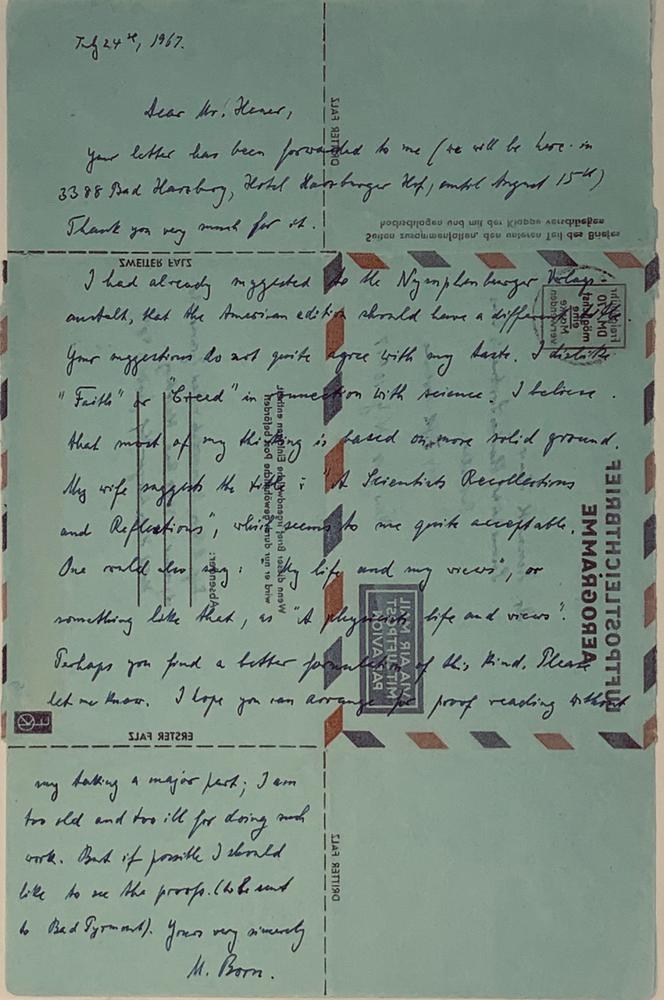 July 24th, 1967.
Dear Mr.
Your letter has been forwarded to me (we will be here in
3388 Bad Harzburg, Hotel Harzburger Hof, until August 15th)
Thank you very much for it.
I had already suggested to the Nymphenburger Verlags-
anstalt, that the American edition should have a different title.
Your suggestions do not quite agree with my taste. I dislike
"Faith" or "Creed" in connection with science. I believe
that most of my thinking is based on more solid ground.
My wife suggests the title: "A Scientists Recollections
and Reflections", which seems to me quite acceptable.
One could also say: "My life and my views", or
something like that, as "A physicists life and views".
Perhaps you find a better formulation of this kind. Please
let me know. I hope you can arrange for proof reading without
my taking a major part; I am
too old and too ill for doing such
work. But if possible I should
like to see the proofs. (to be sent
to Bad Pyrmont). Yours very sincerely
M. Born.
DRITTER FALZ
Seiten zusammenfalten, den unteren Teil des Briefes
hochschlagen und mit der Klappe verschließen
ZWEITER FALZ
Wenn dieser Brief irgendwelche Einlagen enthält,
wird er nur durch gewöhnliche Post befördert
Absender:
MIT LUFTPOST
PAR AVION
VIA AIR MAIL
LUFTPOSTLEICHTBRIEF
AEROGRAMME
ERSTER FALZ
DRITTER FALZ